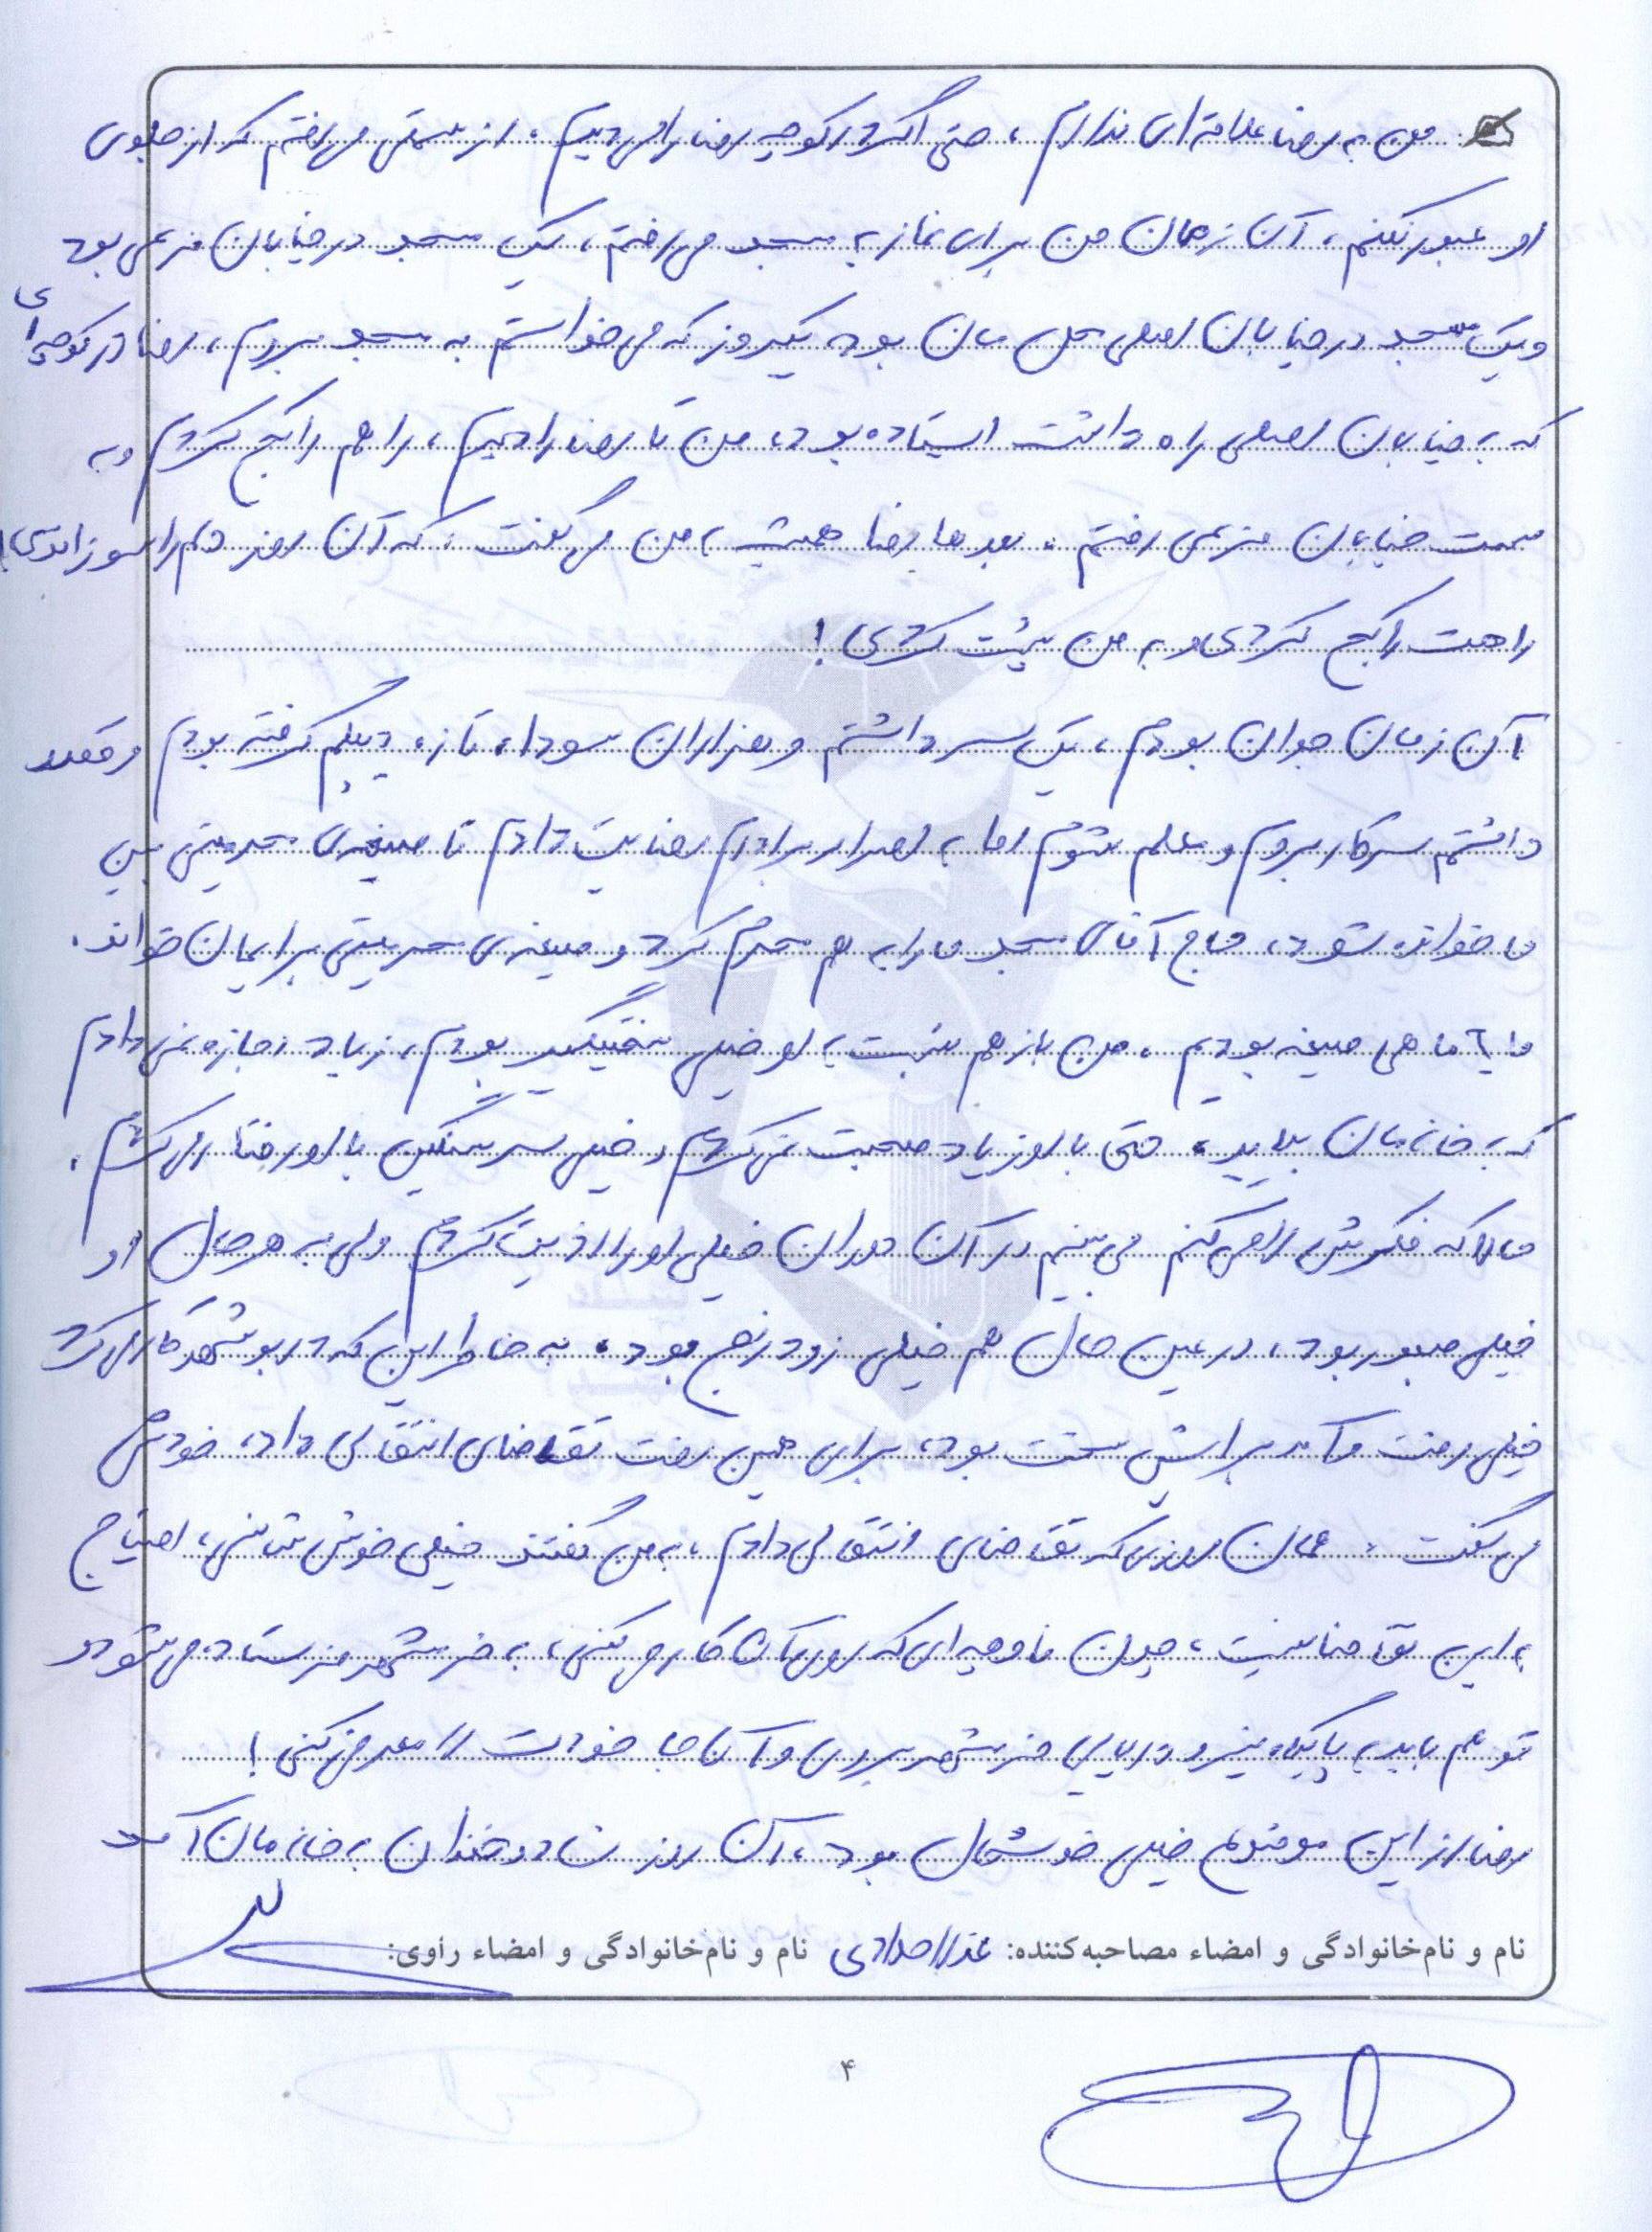 من به رضا علاقه‌ای ندارم، حتی اگر در کوچه رضا را می‌دیدم، از سمتی می‌رفتم که از جلوی
او عبور نکنم، آن زمان من برای نماز به مسجد می‌رفتم، یک مسجد در خیابان فرعی بود
و یک مسجد در خیابان اصلی محل‌مان بود. یکروز که می‌خواستم به مسجد بروم، رضا در کوچه‌ای
که به خیابان اصلی راه داشت ایستاده بود، من تا رضا را دیدم، راهم را کج کردم و به
سمت خیابان فرعی رفتم. بعدها رضا همیشه به من می‌گفت، که آن روز دلم را سوزاندی!
راهت را کج کردی و به من پشت کردی!
آن زمان جوان بودم، یک سر داشتم و هزاران سودا، تازه دیپلم گرفته بودم و قصد
داشتم سر کار بروم و معلم شوم اما به اصرار برادرم رضایت دادم تا صیغه‌ی محرمیتی بین
ما خوانده شود، حاج آقای مسجد ما را به هم محرم کرد و صیغه‌ی محرمیتی برایمان خواند.
ما ۲ ماهی صیغه بودیم، من باز هم نسبت به او خیلی سختگیر بودم، زیاد اجازه نمی‌دادم
که به خانه‌مان بیاید، حتی با او زیاد صحبت نمی‌کردم و خیلی سر سنگین با او رفتار می‌کردم.
حالا که فکرش را می‌کنم می‌بینم در آن دوران خیلی او را اذیت کردم ولی به هر حال او
خیلی صبور بود، در عین حال هم خیلی زود رنج بود، به خاطر این که در بوشهر کار می‌کرد
خیلی رفت و آمد برایش سخت بود، برای همین رفت تقاضای انتقالی داد، خودش
می‌گفت: همان روزی که تقاضای انتقالی دادم، به من گفتند خیلی خوش شانسی، احتیاج
به این تقاضا نیست، چون ناوچه‌ای که روی آن کار می‌کنی، به خرمشهر فرستاده می‌شود و
تو هم باید به پایگاه نیرو دریایی خرمشهر بروی و آن‌جا خودت را معرفی کنی!
رضا از این موضوع خیلی خوشحال بود، آن روز شاد و خندان به خانه‌مان آمد
نام و نام‌خانوادگی و امضاء مصاحبه‌کننده: نام و نام‌خانوادگی و امضاء راوی:
۴